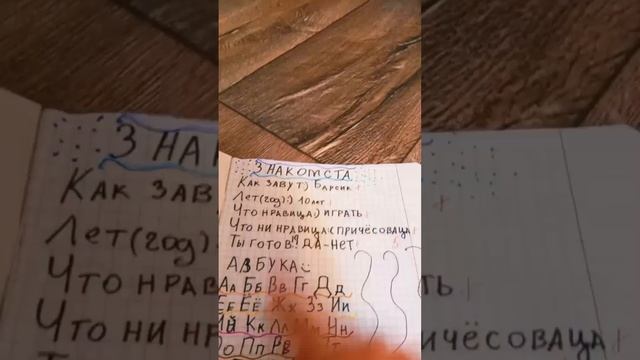 ЗНАКОМСТА
КАК ЗАВУТ) БАРСИК
ЛЕТ(год):) 10 лет
ЧТО НРАВИЦА) ИГРАТЬ
ЧТО НИ НРАВИЦА:( ПРИЧЁСОВАЦА
ТЫ ГОТОВ? ДА-НЕТ
АЗБУКА
Аа Бб Вв Гг Дд
Ее Ёё Жж Зз Ии
Йй Кк Лл Нн
Оо Пп Рр